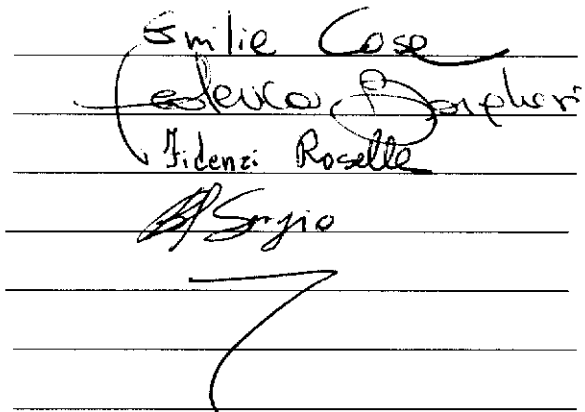 Emilie Cose
Federica Borgheri
Fidenzi Roselle
Sergio